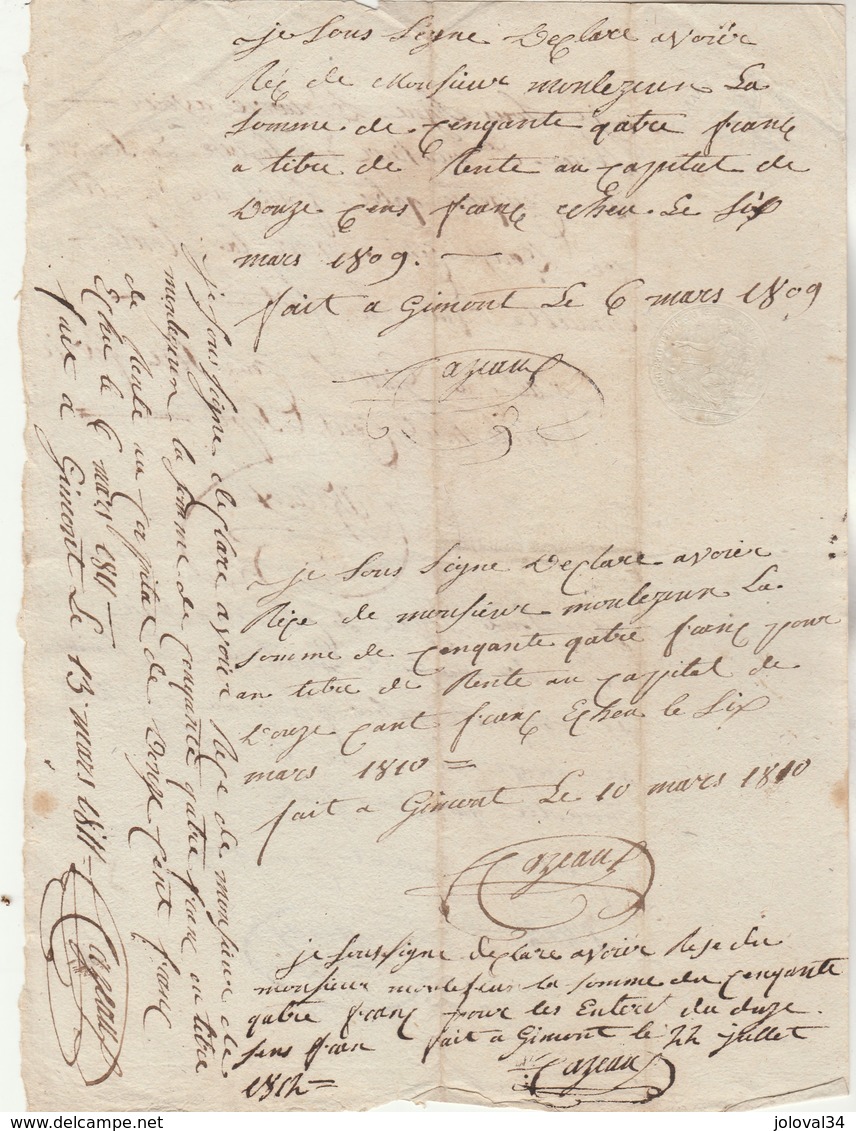 je sous signe declare avoier
Reç de Monsieur monlezeun La
somme de çenqante qatre franç
a titre de Rente au capital de
douze çens franç echeu Le six
mars 1809.
fait a Gimont Le 6 mars 1809
Cazeaux
je sous signe declare avoier
Reçe de monsieur monlezeun La
somme de çenqante qatre franç pour
an titre de Rente au capital de
douze çant franç Echeu le six
mars 1810 =
fait a Gimont Le 10 mars 1810
Cazeaux
je sous signe declare avoier Rese du
monsieur monlesun la somme du çenqante
qatre franç pour les Enteré du duze
sens fran fait a Gimont le 22 juillet
1812 =
Cazeaux
je sous signe declare avoier Reçe de monsieur de
monlezeun la somme de çenqante qatre franc au titre
de Rente au capital de douze çent franç
Echu le 6 mars 1811
fait a Gimont Le 13 mars 1811 = Cazeaux
www.delcampe.net
joloval34